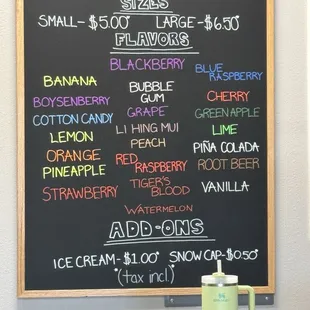 SIZES
SMALL-$5.00 LARGE-$6.50
FLAVORS
BLACKBERRY
BLUE RASPBERRY
BANANA
BUBBLE GUM
CHERRY
BOYSENBERRY
GRAPE
GREEN APPLE
COTTON CANDY
LI HING MUI
LIME
LEMON
PEACH
PIÑA COLADA
ORANGE
RED RASPBERRY
ROOT BEER
PINEAPPLE
TIGER'S BLOOD
VANILLA
STRAWBERRY
WATERMELON
ADD-ONS
ICE CREAM-$1.00 SNOW CAP-$0.50
*(tax incl.)